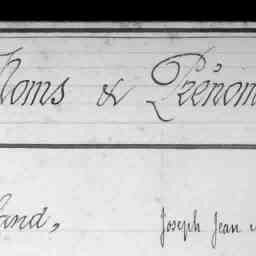 Noms & Prénom
and, Joseph Jean